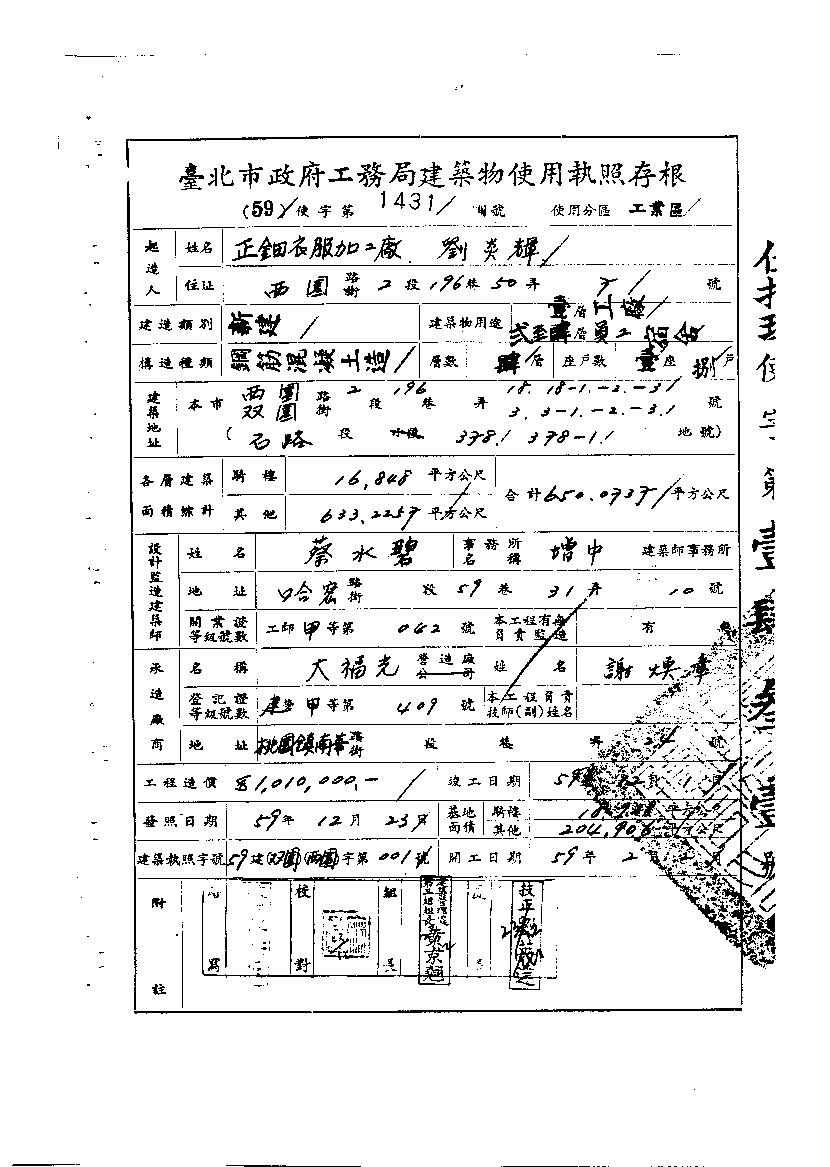 臺北市政府工務局建築物使用執照存根
(59)使字第 1431 號 使用分區 工業區
起造人 姓名 正鈿衣服加工廠 劉炎輝
住址 西園 路街 2 段 196 巷 50 弄 號
建造類別 新建 建築物用途 壹層工廠 貳至肆層員工宿舍
構造種類 鋼筋混凝土造 層數 肆層 座戶數 壹座 捌戶
建築地址 本市 西園 双園 路街 2 段 196 巷 弄 18.18-1.-2.-3. 3.3-1.-2.-3. 號
(石路 段 小段 378. 378-1. 地號)
各層建築面積總計 騎樓 16,848 平方公尺 合計 650.0737 平方公尺
其他 633.2257 平方公尺
設計監造建築師 姓名 蔡水碧 事務所名稱 增中 建築師事務所
地址 哈密 路街 段 59 巷 31 弄 10 號
開業證等級號數 工師 甲 等第 042 號 本工程有無負責監造 有 無
承造廠商 名稱 大福光 營造廠公司 姓名 謝煥章
登記證等級號數 建營 甲 等第 409 號 本工程負責技師(副)姓名
地址 桃園鎮南華 路街 段 巷 弄 24 號
工程造價 1,010,000,- 竣工日期 59年 12月 1日
發照日期 59年 12月 23日 基地面積 騎樓 平方公尺
其他 204,906 平方公尺
建築執照字號 59建(双園)(西園)字第001號 開工日期 59年 2月 日
附註
寫 校對 組長
使字第壹肆叁壹號